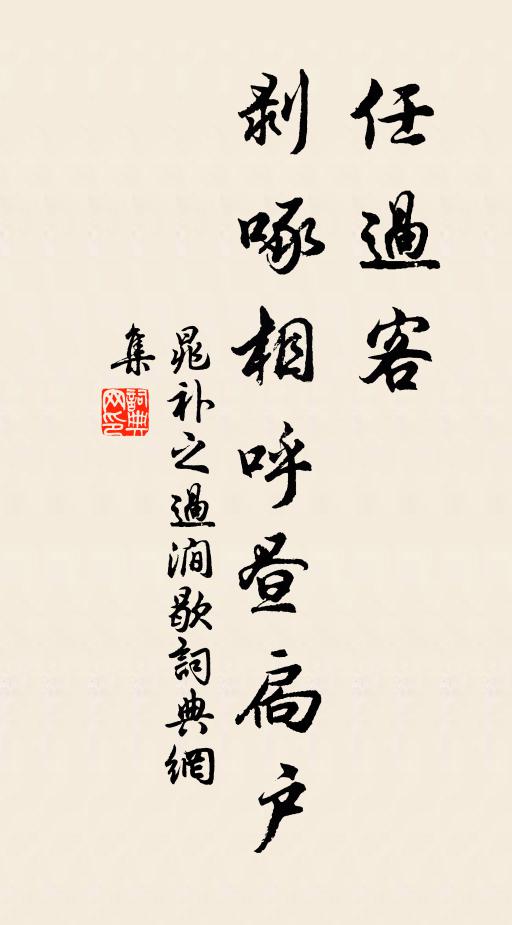 任過客
剥啄相呼昼扃户
晁补之過澗歇詞典網
集
詞典
网印